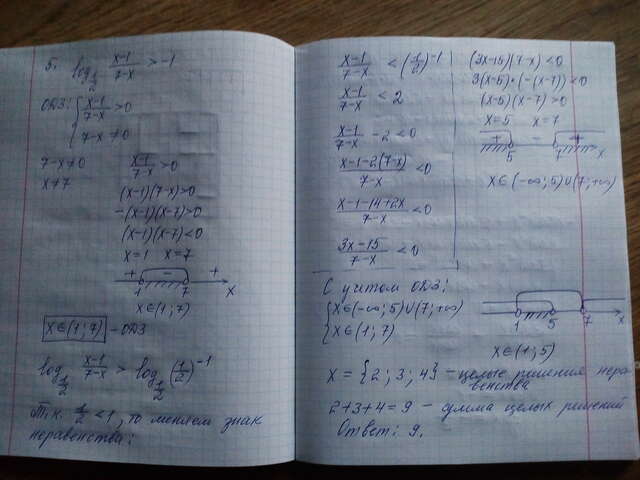 5. log_{1/2} (x-1)/(7-x) > -1
ОДЗ: { (x-1)/(7-x) > 0
7-x ≠ 0
7-x≠0 (x-1)/(7-x) > 0
x≠7
(x-1)(7-x)>0
-(x-1)(x-7)>0
(x-1)(x-7)<0
x=1 x=7
+ - +
1 7 x
x∈(1;7)
x∈(1;7) - ОДЗ
log_{1/2} (x-1)/(7-x) > log_{1/2} (1/2)^{-1}
Т.к. 1/2 < 1, то меняем знак
неравенства:
(x-1)/(7-x) < (1/2)^{-1}
(x-1)/(7-x) < 2
(x-1)/(7-x) - 2 < 0
(x-1-2(7-x))/(7-x) < 0
(x-1-14+2x)/(7-x) < 0
(3x-15)/(7-x) < 0
(3x-15)(7-x)<0
3(x-5)·(-(x-7))<0
(x-5)(x-7)>0
x=5 x=7
+ - +
5 7 x
x∈(-∞;5)∪(7;+∞)
С учетом ОДЗ:
{ x∈(-∞;5)∪(7;+∞)
x∈(1;7)
1 5 7 x
x∈(1;5)
x = {2; 3; 4} - целые решения нера-
венства
2+3+4=9 - сумма целых решений
Ответ: 9.